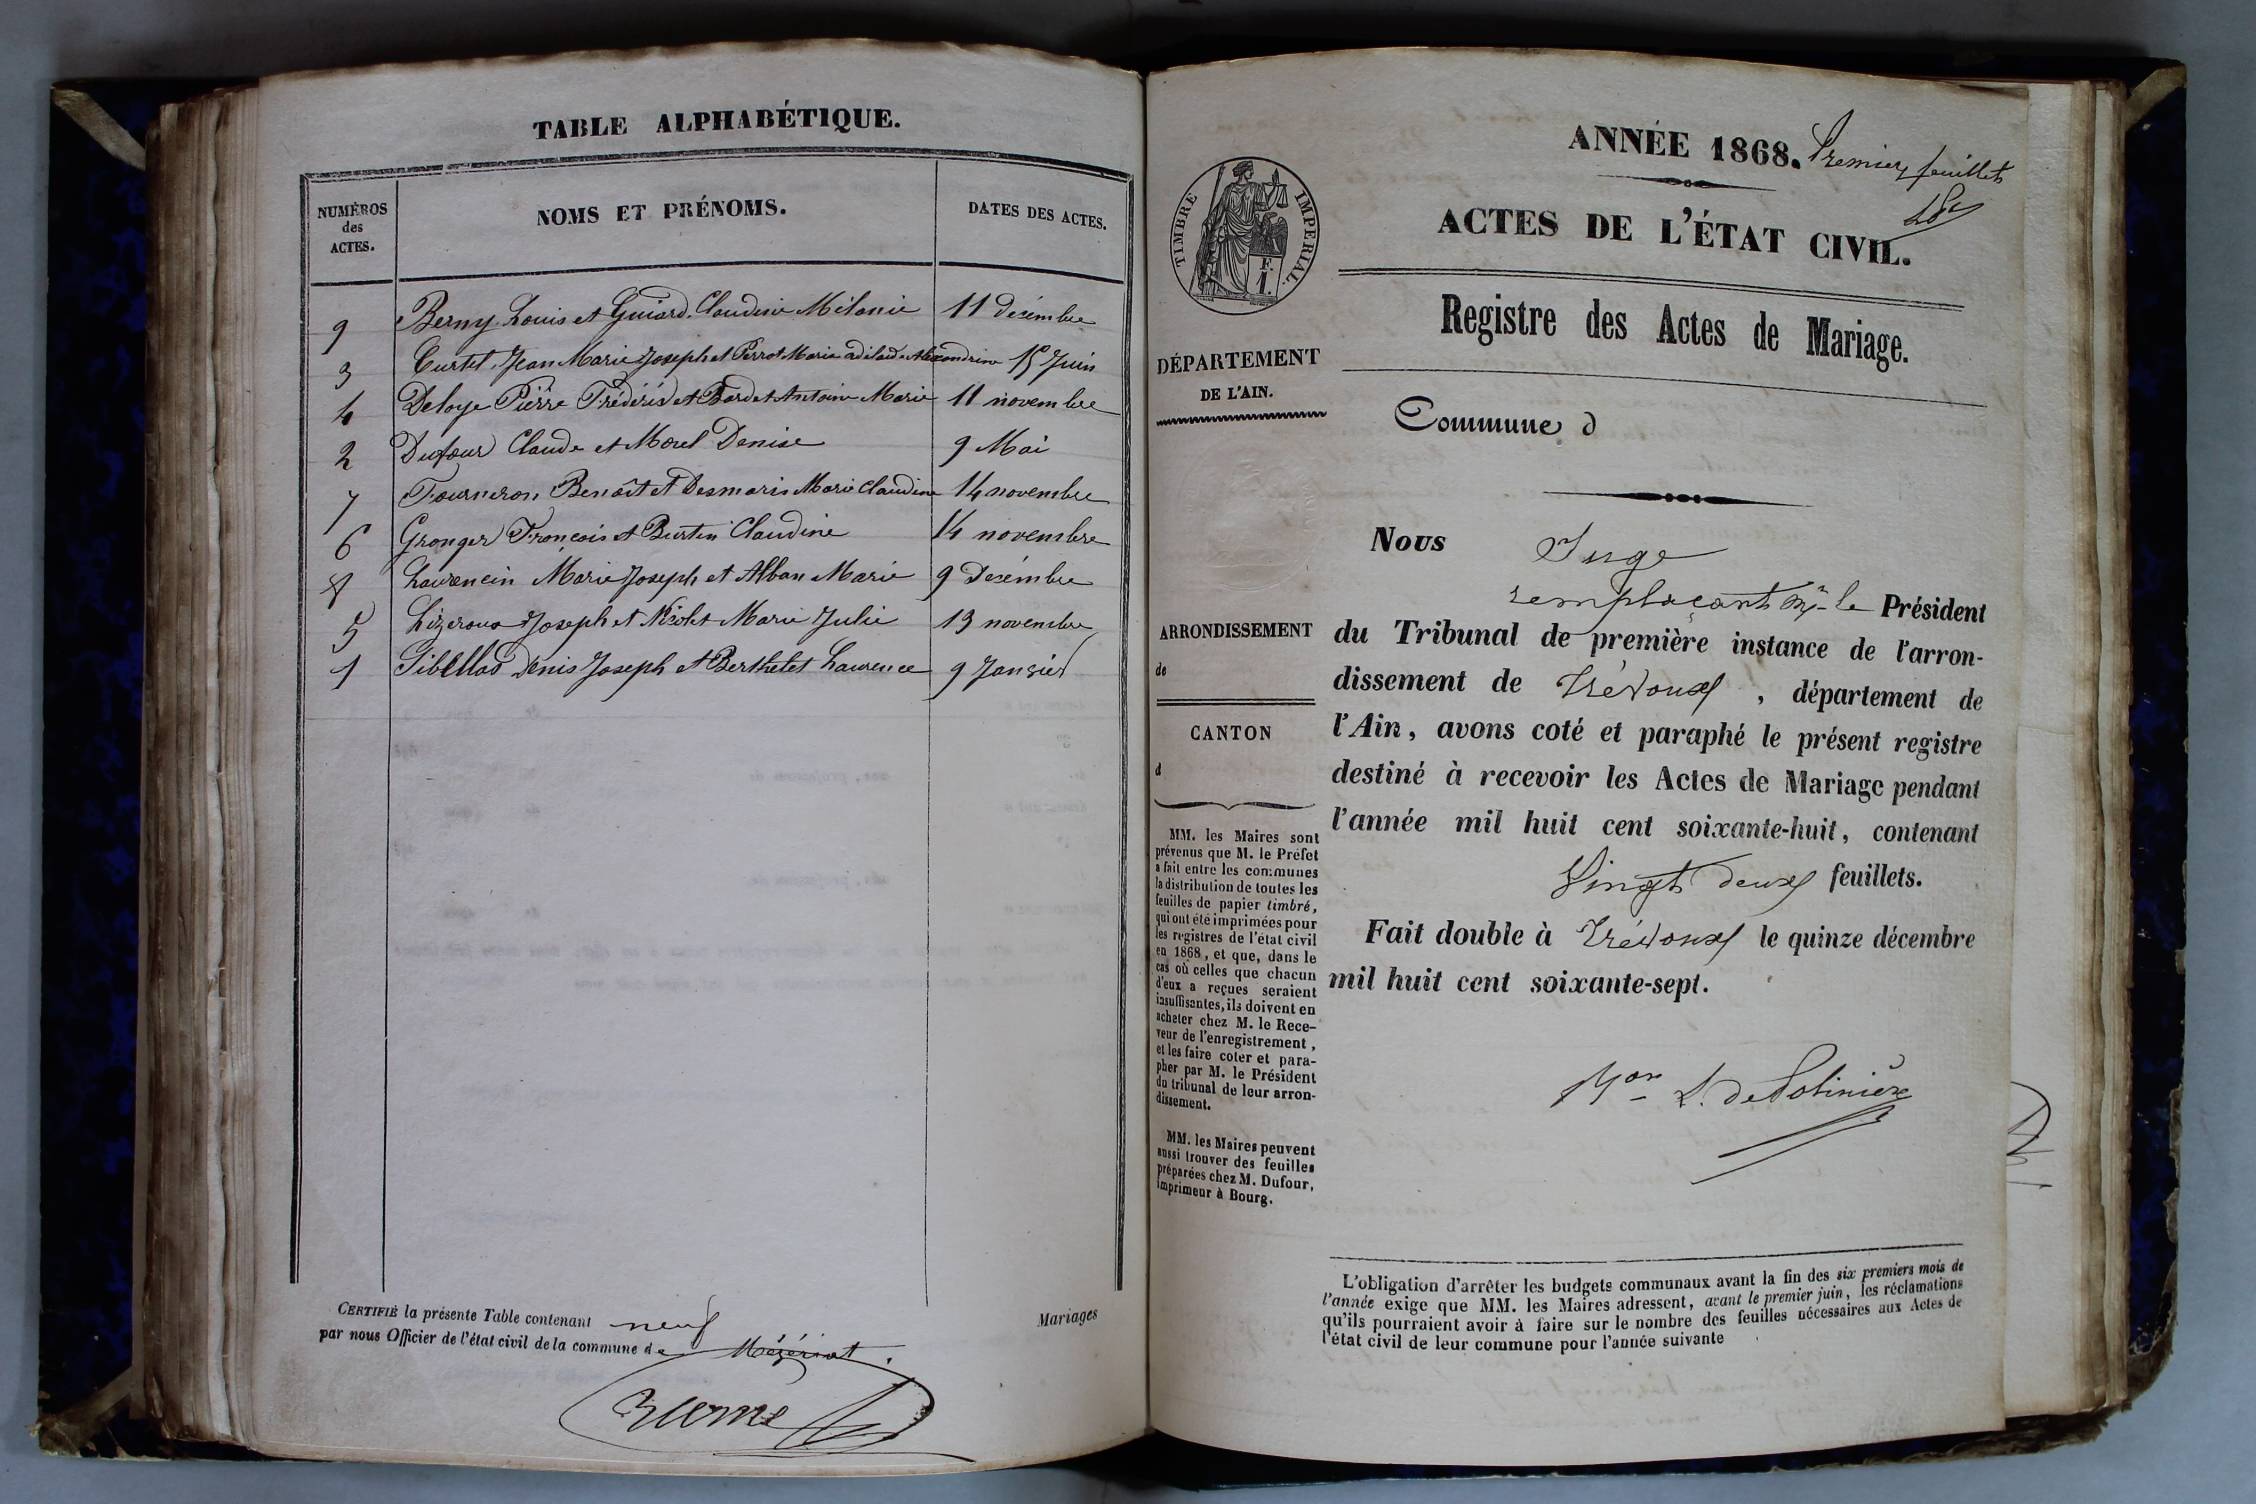 TABLE ALPHABÉTIQUE.
NUMÉROS des ACTES.
NOMS ET PRÉNOMS.
DATES DES ACTES.
9 Berny Louis et Guiard Claudine Mélanie 11 Desémbre
3 Curtet Jean Marie Joseph et Perrot Marie adélaide Alexandrine 15 Juin
4 Deloye Pierre Frédéric et Bardet Antoine Marie 11 novembre
2 Dufour Claude et Morel Denise 9 Mai
7 Fourneron Benoît et Desmaris Marie Claudine 14 novembre
6 Gronger François et Burtin Claudine 14 novembre
8 Laurencin Marie Joseph et Alban Marie 9 Desémbre
5 Lizeroux Joseph et Nicolet Marie Julie 13 novembre
1 Sibellas Denis Joseph et Berthelet Laurence 9 Janvier
CERTIFIÉ la présente Table contenant neuf Mariages
par nous Officier de l'état civil de la commune de Mézériat.
TIMBRE IMPÉRIAL.
F.
1.
ANNÉE 1868. Premier feuillet
ACTES DE L'ÉTAT CIVIL.
Registre des Actes de Mariage.
DÉPARTEMENT
DE L'AIN.
Commune d
ARRONDISSEMENT
de
CANTON
d
MM. les Maires sont
prévenus que M. le Préfet
a fait entre les communes
la distribution de toutes les
feuilles de papier timbré,
qui ont été imprimées pour
les registres de l'état civil
en 1868, et que, dans le
cas où celles que chacun
d'eux a reçues seraient
insuffisantes, ils doivent en
acheter chez M. le Rece-
veur de l'enregistrement,
et les faire coter et para-
pher par M. le Président
du tribunal de leur arron-
dissement.
MM. les Maires peuvent
aussi trouver des feuilles
préparées chez M. Dufour,
imprimeur à Bourg.
Nous Juge
remplaçant Mr le Président
du Tribunal de première instance de l'arron-
dissement de Trévoux, département de
l'Ain, avons coté et paraphé le présent registre
destiné à recevoir les Actes de Mariage pendant
l'année mil huit cent soixante-huit, contenant
Vingt deux feuillets.
Fait double à Trévoux le quinze décembre
mil huit cent soixante-sept.
L'obligation d'arrêter les budgets communaux avant la fin des six premiers mois de
l'année exige que MM. les Maires adressent, avant le premier juin, les réclamations
qu'ils pourraient avoir à faire sur le nombre des feuilles nécessaires aux Actes de
l'état civil de leur commune pour l'année suivante